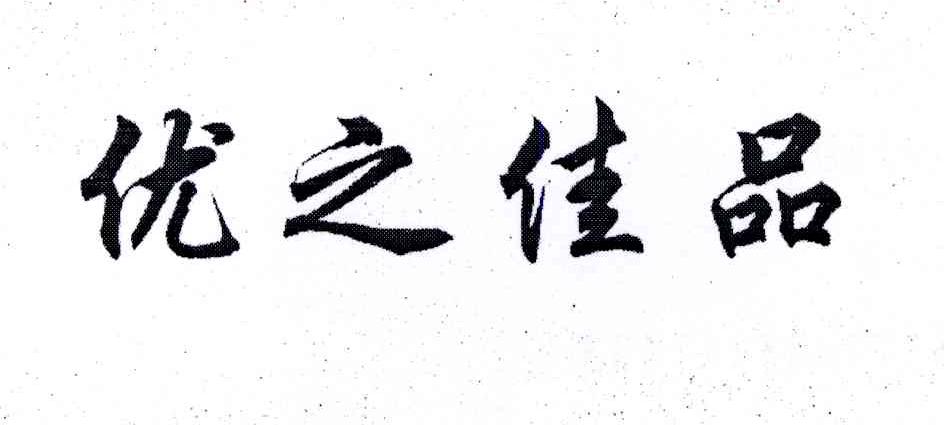 优之佳品